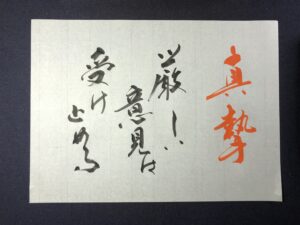 真摯
厳しい
意見は
受け
止める